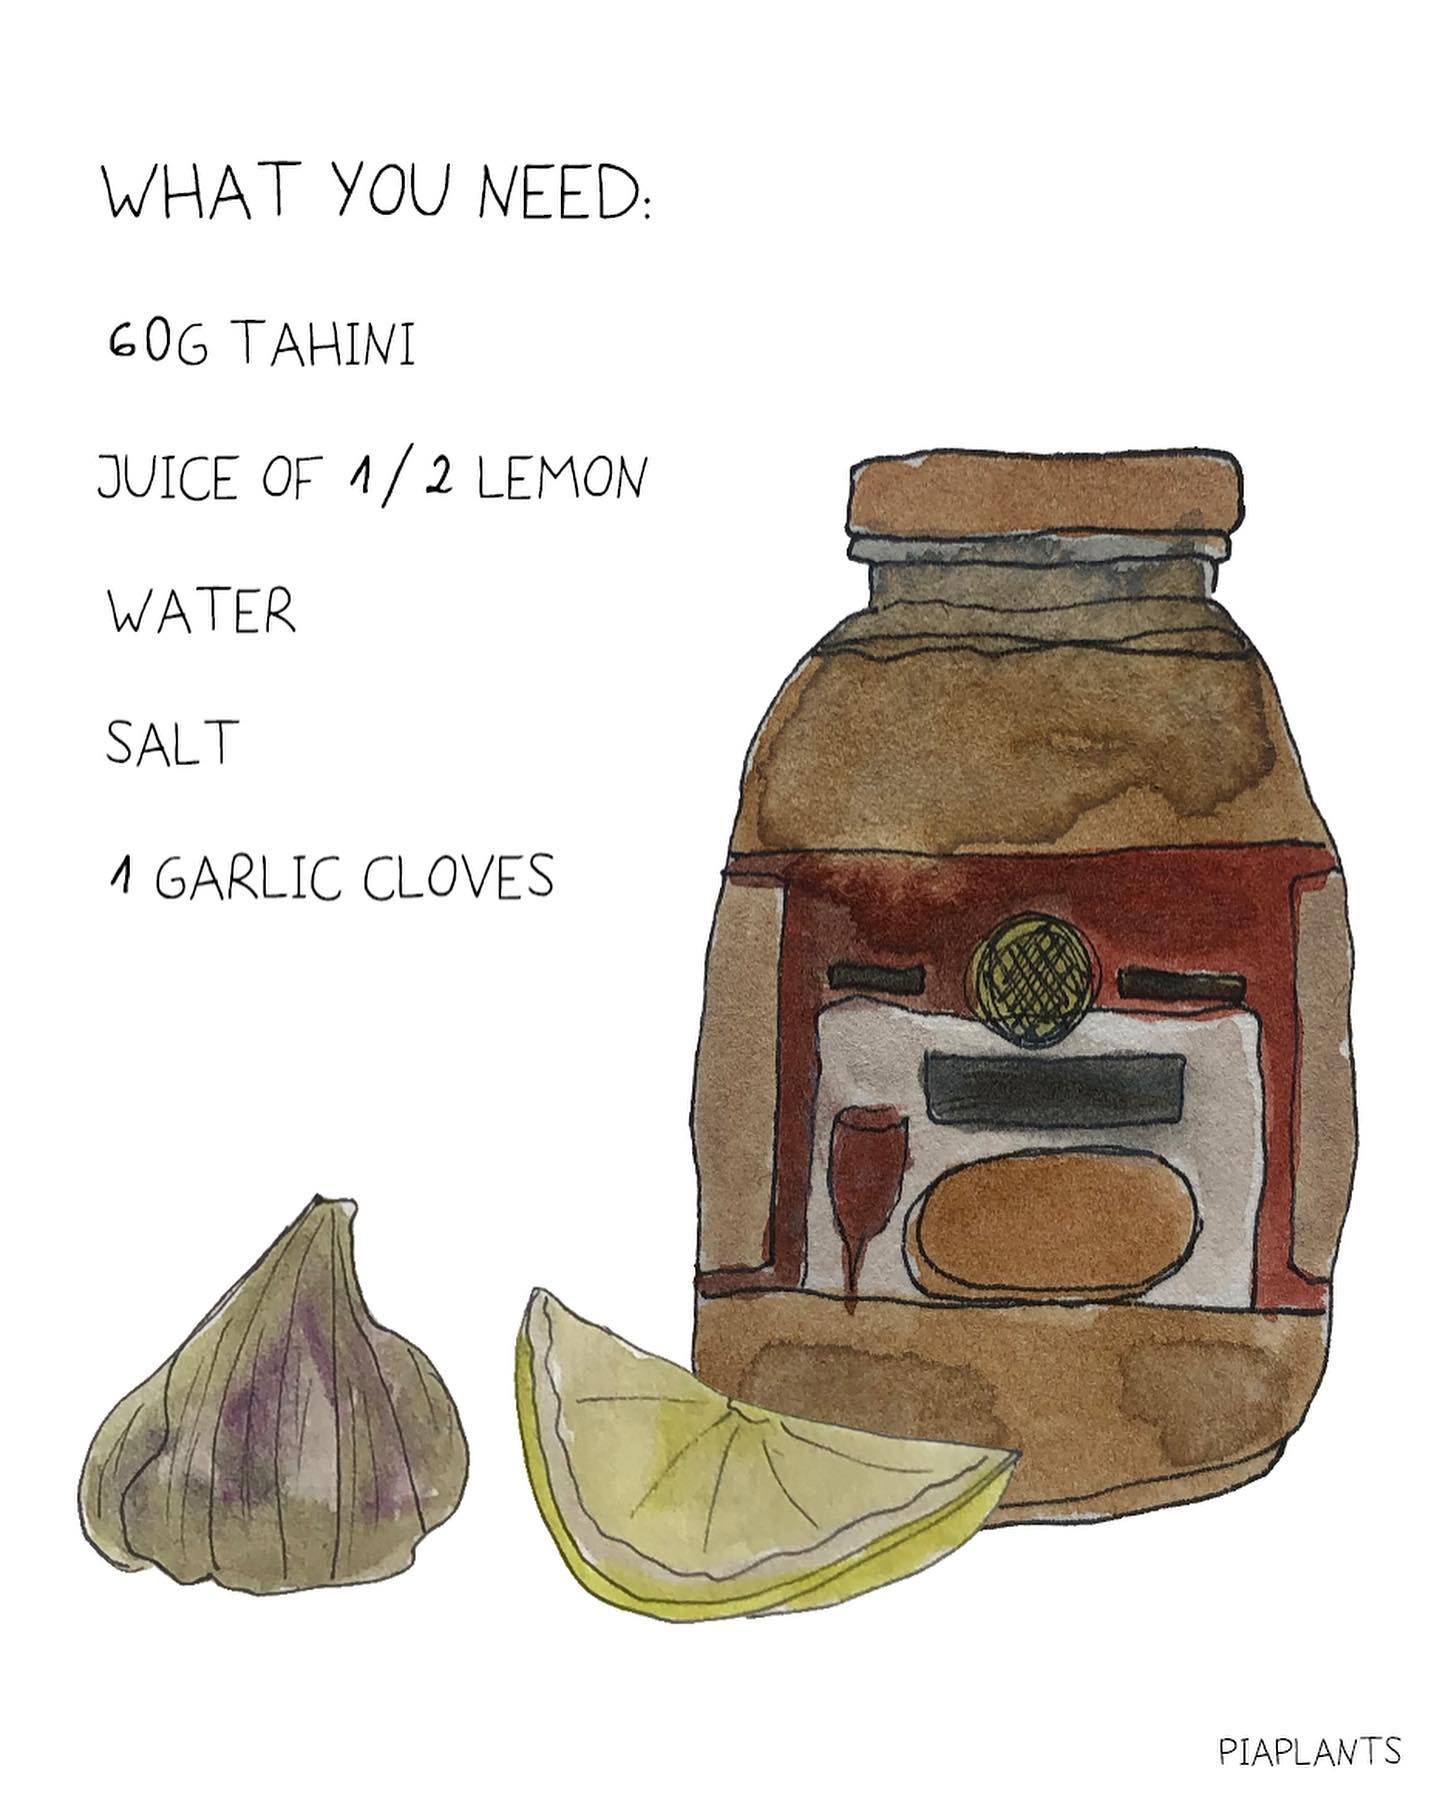 WHAT YOU NEED:
60G TAHINI
JUICE OF 1/2 LEMON
WATER
SALT
1 GARLIC CLOVES
PIAPLANTS